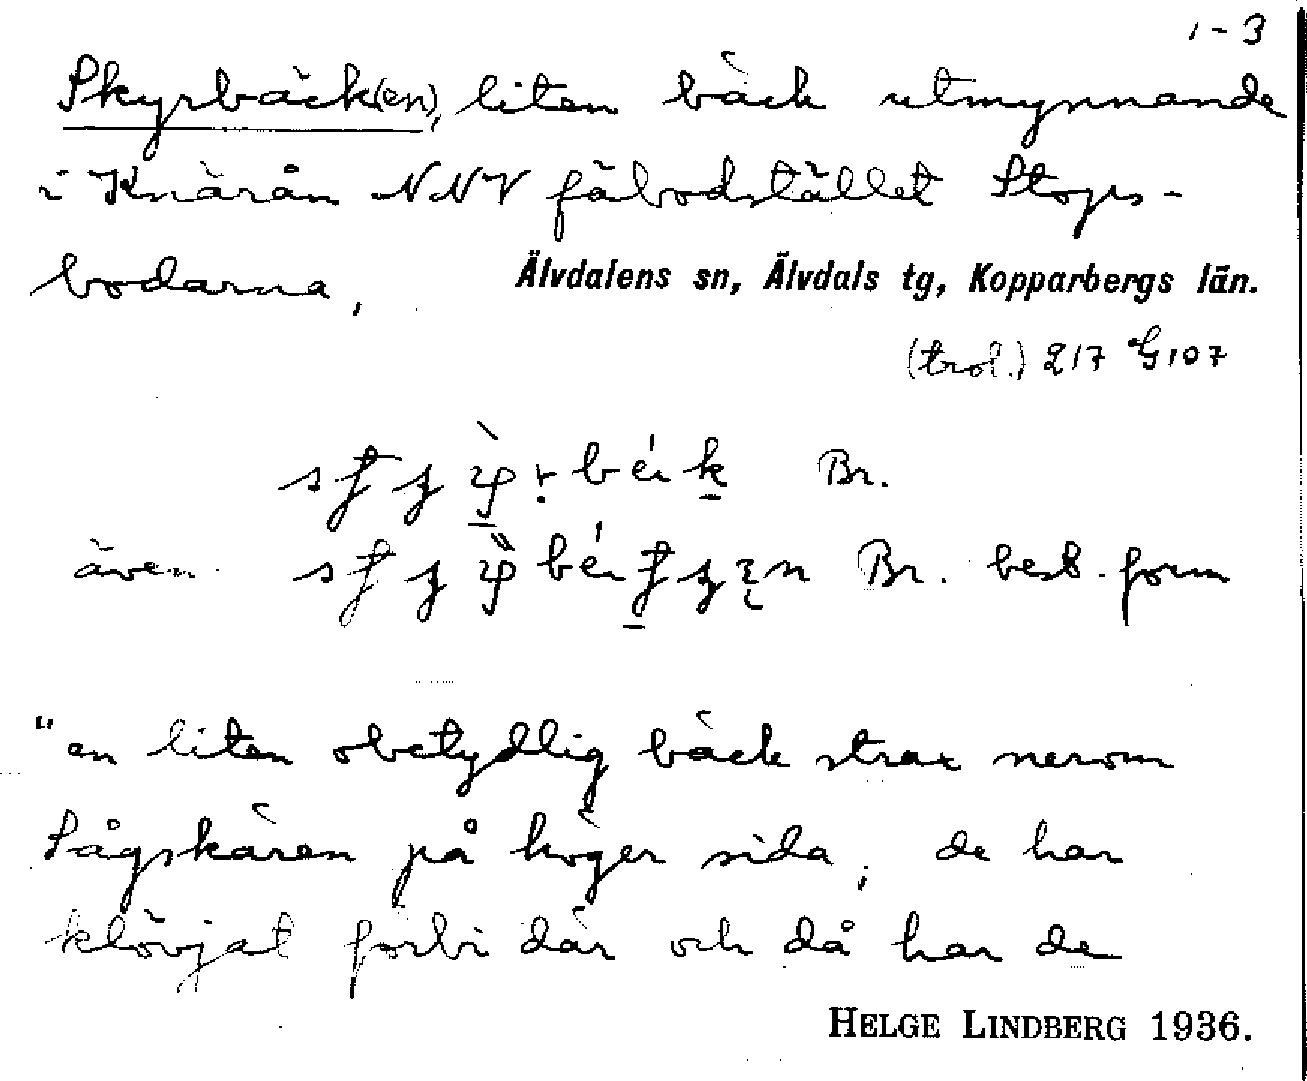 1-3
Skyrbäck(en), liten bäck utmynnande
i Knärån NNV fäbodstället Stops-
bodarna,
Älvdalens sn, Älvdals tg, Kopparbergs län.
(trol.) 217 G107
Br.
även Br. best. form
"en liten obetydlig bäck strax nerom
Sågskären på höger sida, de har
klövjat förbi där och då har de
HELGE LINDBERG 1936.